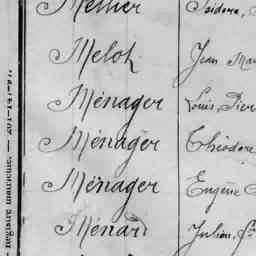 Mellier Isidore,
Meloh Jean Mar
Ménager Louis Pier
Ménager Théodore
Ménager Eugène
Ménard Julien, Fs
Registre matricule. —